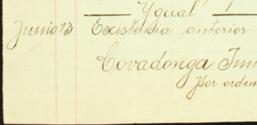 Ygual
Junio 13 Existencia anterior
Covadonga Jun
Por orden